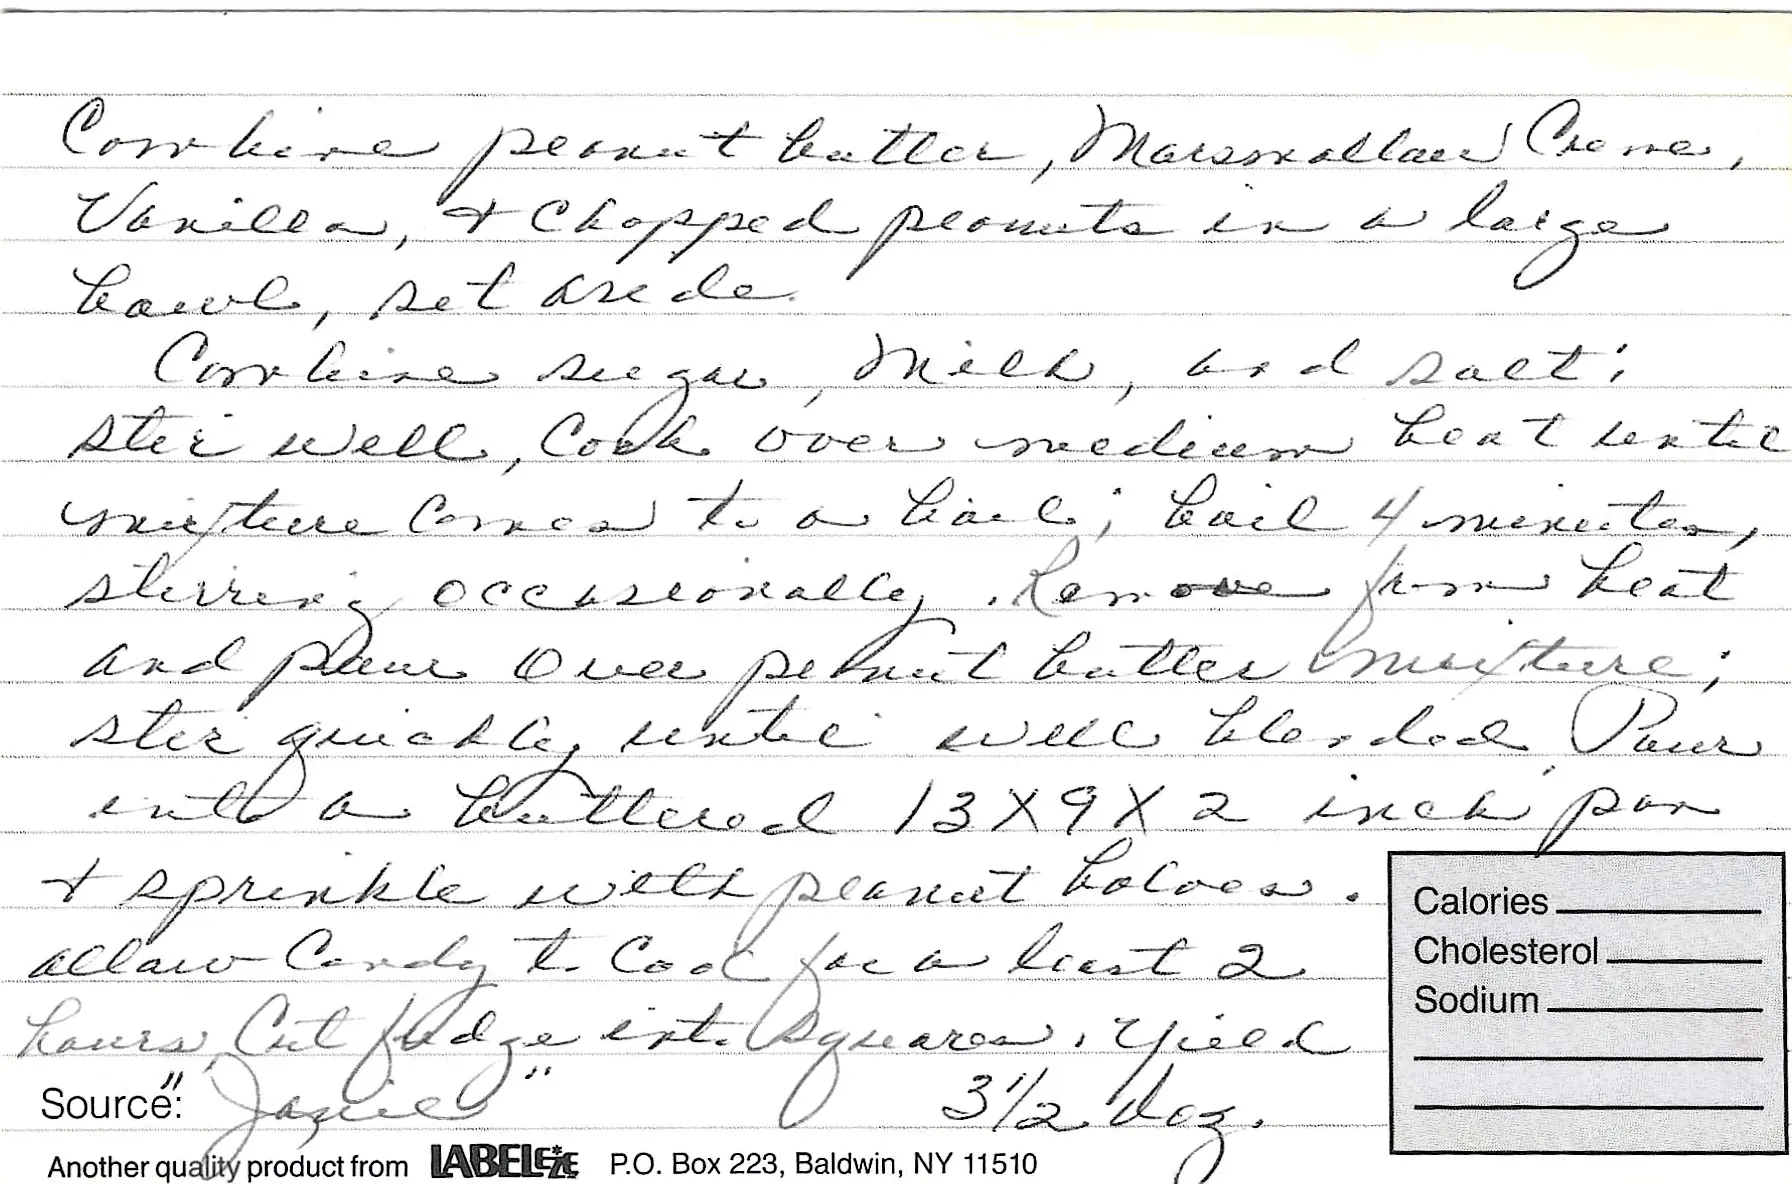 Combine peanut butter, Marsmallow Creme,
Vanilla, + Chopped peanuts in a large
bowl, set aside.
Combine sugar, Milk, and salt;
stir well, Cook over medium heat until
mixture Comes to a boil; boil 4 minutes,
stirring occasionally. Remove from heat
and pour Over peanut butter mixture;
stir quickly until well blended. Pour
into a buttered 13 X 9 X 2 inch pan
+ sprinkle with peanut halves.
allow Candy to Cool for a least 2
hours, Cut fudge into squares. Yield
3 1/2 doz.
Source: "Janie"
Another quality product from LABELEZE P.O. Box 223, Baldwin, NY 11510
Calories
Cholesterol
Sodium